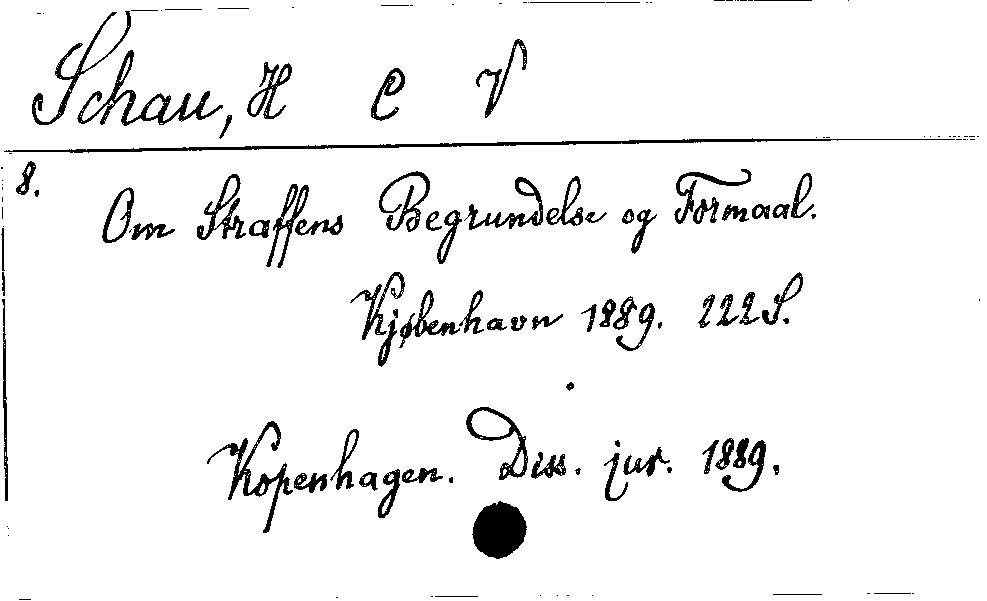 Schau, H C V
8.
Om Straffens Begrundelse og Formaal.
Kjøbenhavn 1889. 222 S.
Kopenhagen. Diss. jur. 1889.